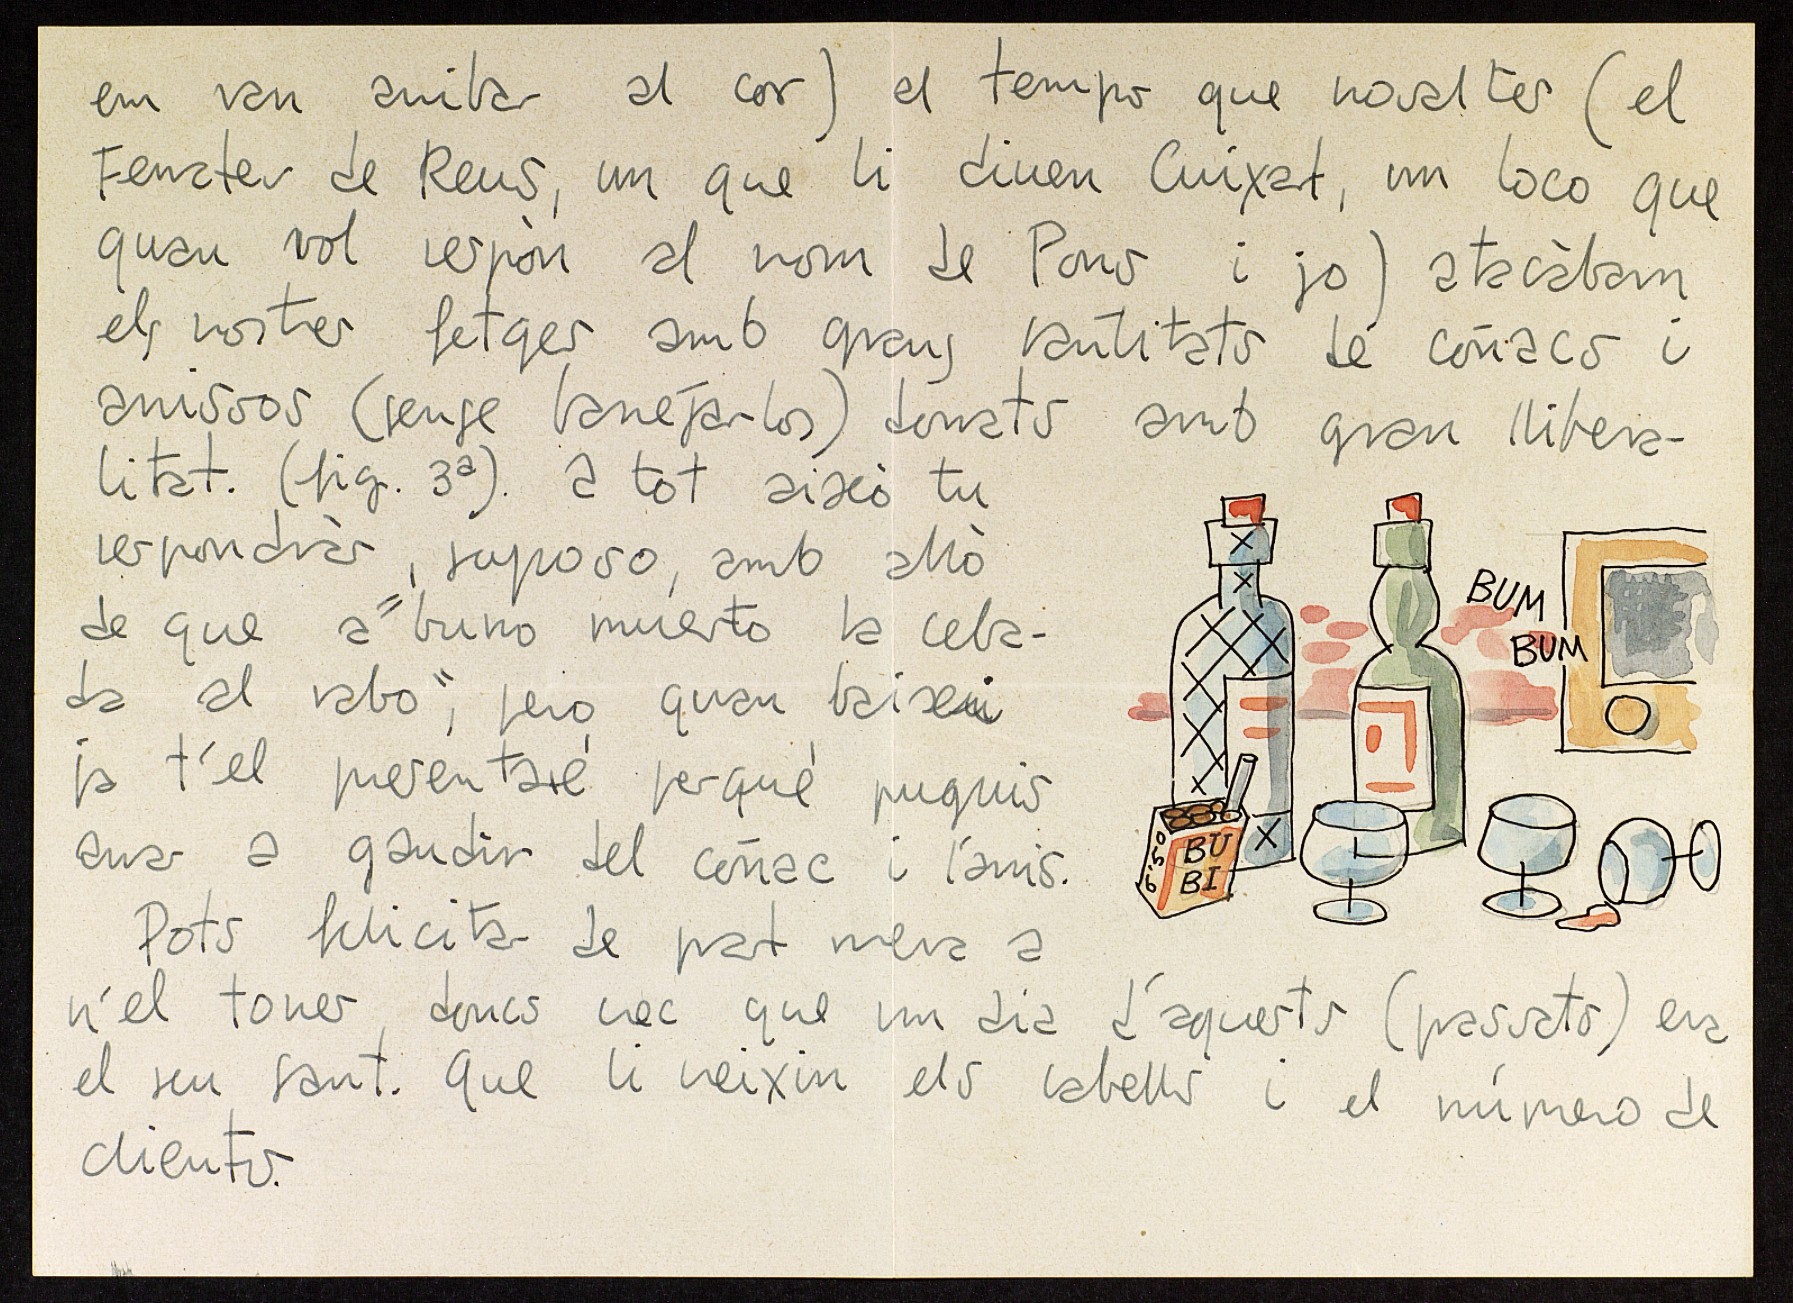 em van arribar al cor) el tempo que nosaltres (el
Ferrater de Reus, un que li diuen Cuixart, un loco que
quan vol respòn al nom de Pons i jo) atacàbam
els nostres fetges amb grans cantitats de coñacs i
anissos (sense barrejar-los) donats amb gran llibera-
litat. (fig. 3ª). A tot aixó tu
respondràs, suposo, amb allò
de que a "burro muerto la ceba-
da al rabo", pero quan baixeu
ja t'el presentaré perqué puguis
anar a gaudir del coñac i l'anis.
Pots felicitar de part meva a
n'el torner, doncs crec que un dia d'aquests (passats) era
el seu sant. Que li creixin els cabells i el número de
clients.
BUM
BUM
6'50
BU
BI